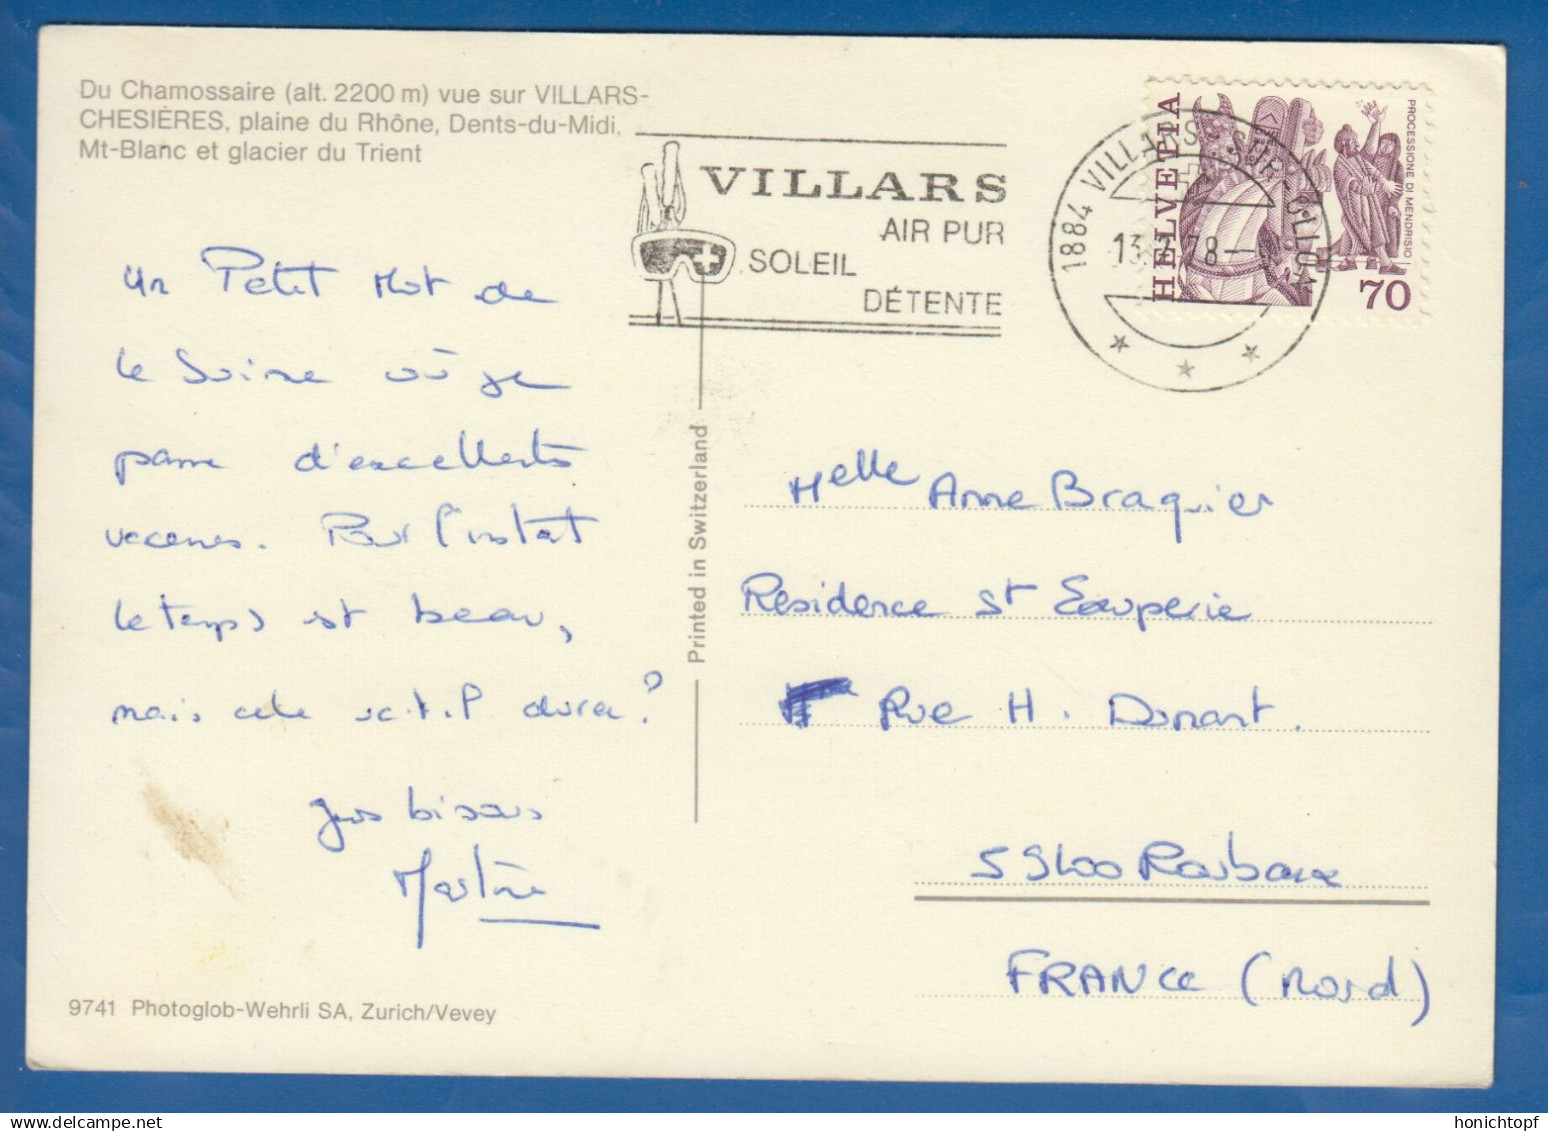 Du Chamossaire (alt. 2200 m) vue sur VILLARS-
CHESIÈRES, plaine du Rhône, Dents-du-Midi,
Mt-Blanc et glacier du Trient
VILLARS
AIR PUR
SOLEIL
DÉTENTE
1884 VILLARS-SUR-OLLON
13.2.78
HELVETIA
PROCESSIONE DI MENDRISIO
70
Un Petit Mot de
la Suisse où je
passe d'excellentes
vacances. Pour l'instant
le temps est beau,
mais cela va-t-il durer?
Gros bisous
Martine
Printed in Switzerland
Melle Anne Braquier
Residence St Exuperie
Rue H. Dunant.
59100 Roubaix
FRANCE (Nord)
9741 Photoglob-Wehrli SA, Zurich/Vevey
honichtopf